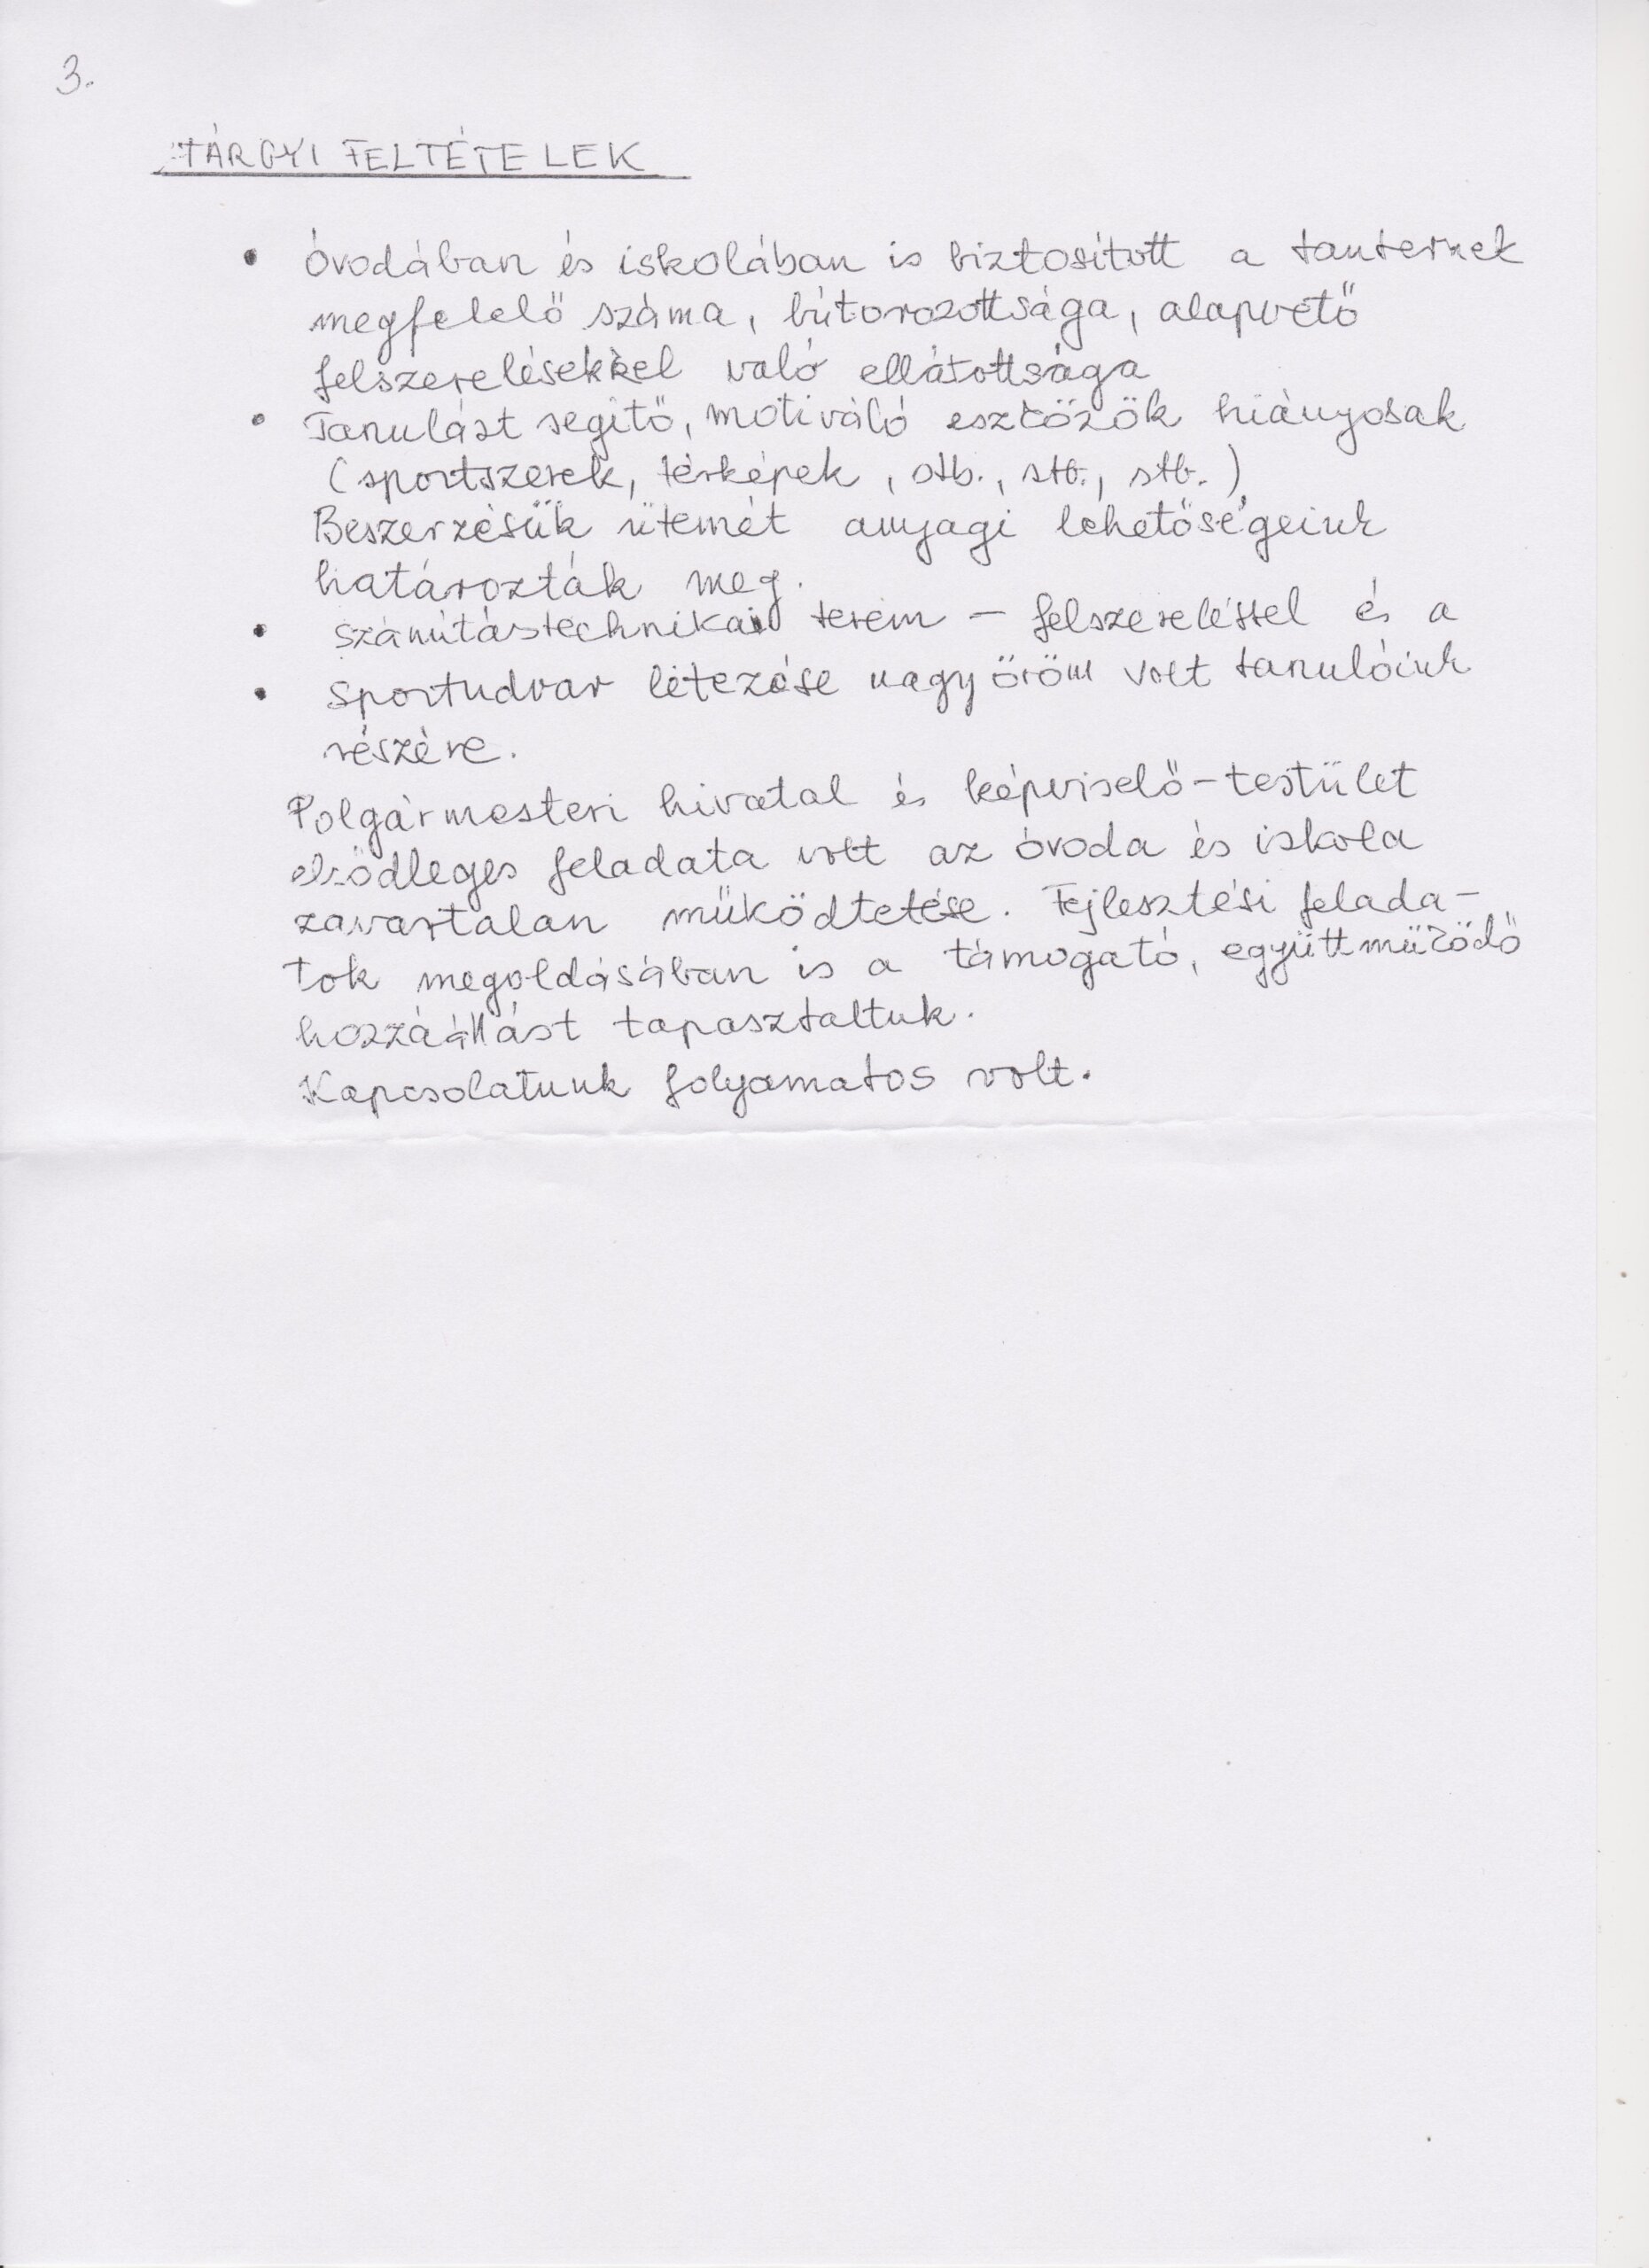 3.
TÁRGYI FELTÉTELEK
• óvodában és iskolában is biztosított a tantermek
megfelelő száma, bútorozottsága, alapvető
felszerelésekkel való ellátottsága
• Tanulást segítő, motiváló eszközök hiányosak
(sportszerek, térképek, stb., stb., stb.)
Beszerzésük ütemét anyagi lehetőségeink
határozták meg.
• számítástechnikai terem – felszereléssel és a
• sportudvar létezése nagy öröm volt tanulóink
részére.
Polgármesteri hivatal és képviselő-testület
elsődleges feladata volt az óvoda és iskola
zavartalan működtetése. Fejlesztési felada-
tok megoldásában is a támogató, együttműködő
hozzáállást tapasztaltuk.
Kapcsolatunk folyamatos volt.